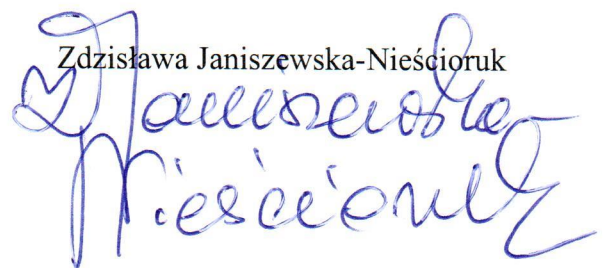 Zdzisława Janiszewska-Nieścioruk
Z Janiszewska-
Nieścioruk